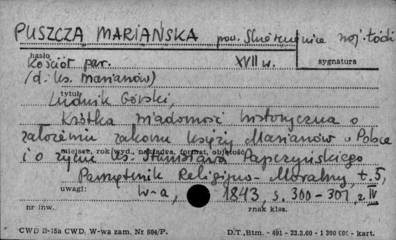 PUSZCZA MARIAŃSKA pow. Skierniewice woj. Łódź
hasło sygnatura
Kościół par. XVII w.
(d. ks. Marianów)
tytuł
Ludwik Górski,
Krótka wiadomość historyczna o
założeniu zakonu księży Marianów w Polsce
miejsce, rok wyd., nakładca, format, objętość
i o życiu ks. Stanisława Papczyńskiego
Pamiętnik Religijno-Moralny, t. 5,
uwagi:
W-a, 1843, s. 300-301, z IV
nr inw. znak klas.
CWD B-15a CWD, W-wa zam. Nr 504/P. D.T., Btm. - 491 - 23.2.60 - 1 300 000 - kart.